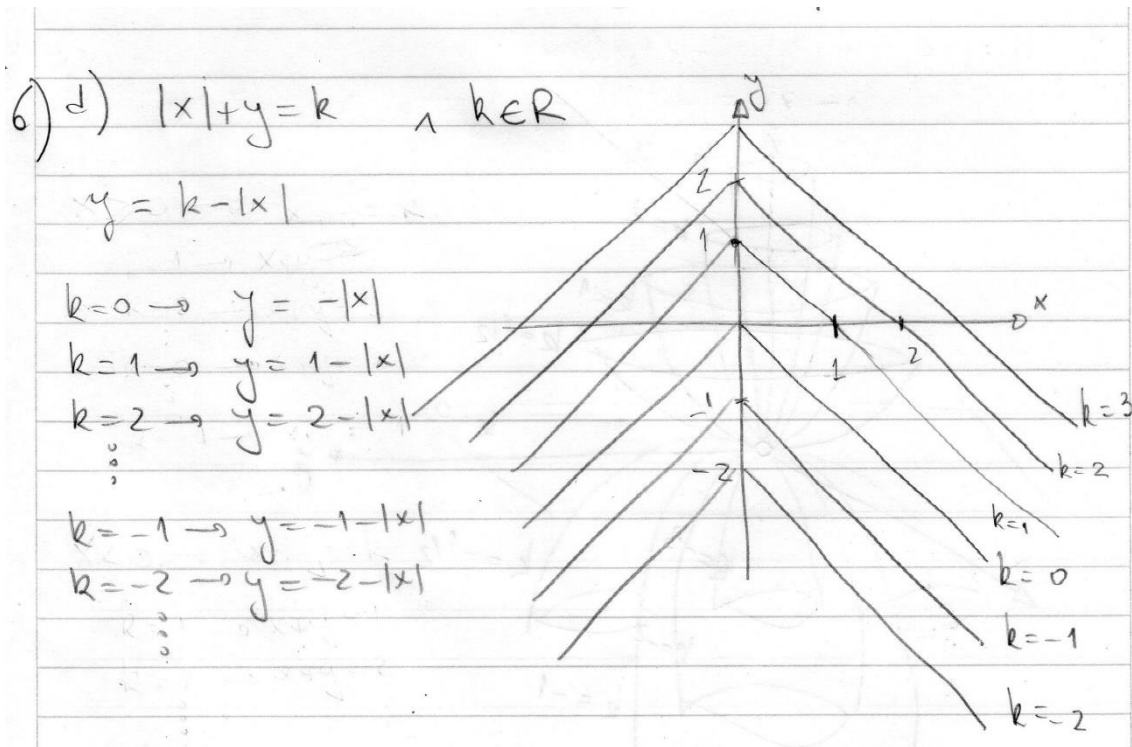 6) d) |x|+y=k ∧ k∈R
y = k-|x|
k=0 → y = -|x|
k=1 → y = 1-|x|
k=2 → y = 2-|x|
...
k=-1 → y=-1-|x|
k=-2 → y=-2-|x|
...
y
2
1
x
1
2
-1
-2
k=3
k=2
k=1
k=0
k=-1
k=-2